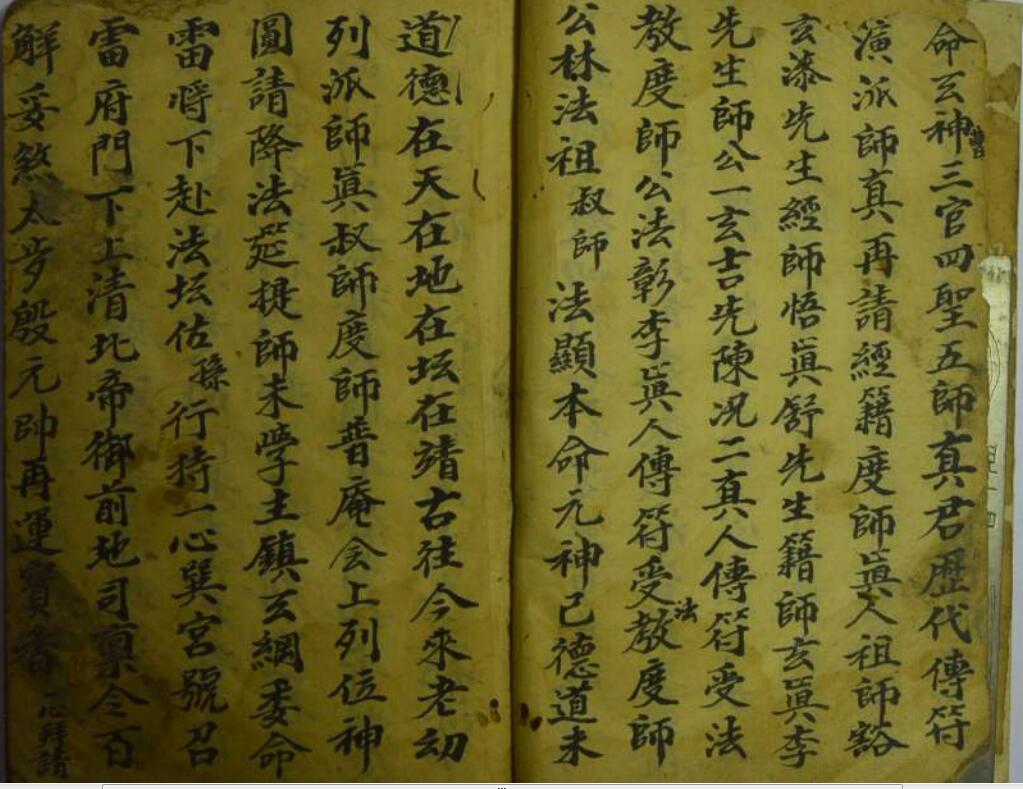 命玄神三官四聖五師真君歷代傳符
演派師真再請經籍度師眞人祖師豁
玄漆先生經師悟眞舒先生籍師玄眞李
先生師公一玄吉先陳况二真人傳符受法
教度師公法彰李眞人傳符受法教度師
公林法祖叔師法顯本命元神已德道未
道德在天在地在坛在靖古徃今來老幼
列派師眞叔師度師普庵会上列位神
圖請降法筵提師未學主鎮玄綱委命
雷將下赴法坛佐孫行持一心巽宮號召
雷府門下上清北帝御前地司禀令百
解妥煞太歩殷元帥再運寶香一心拜請